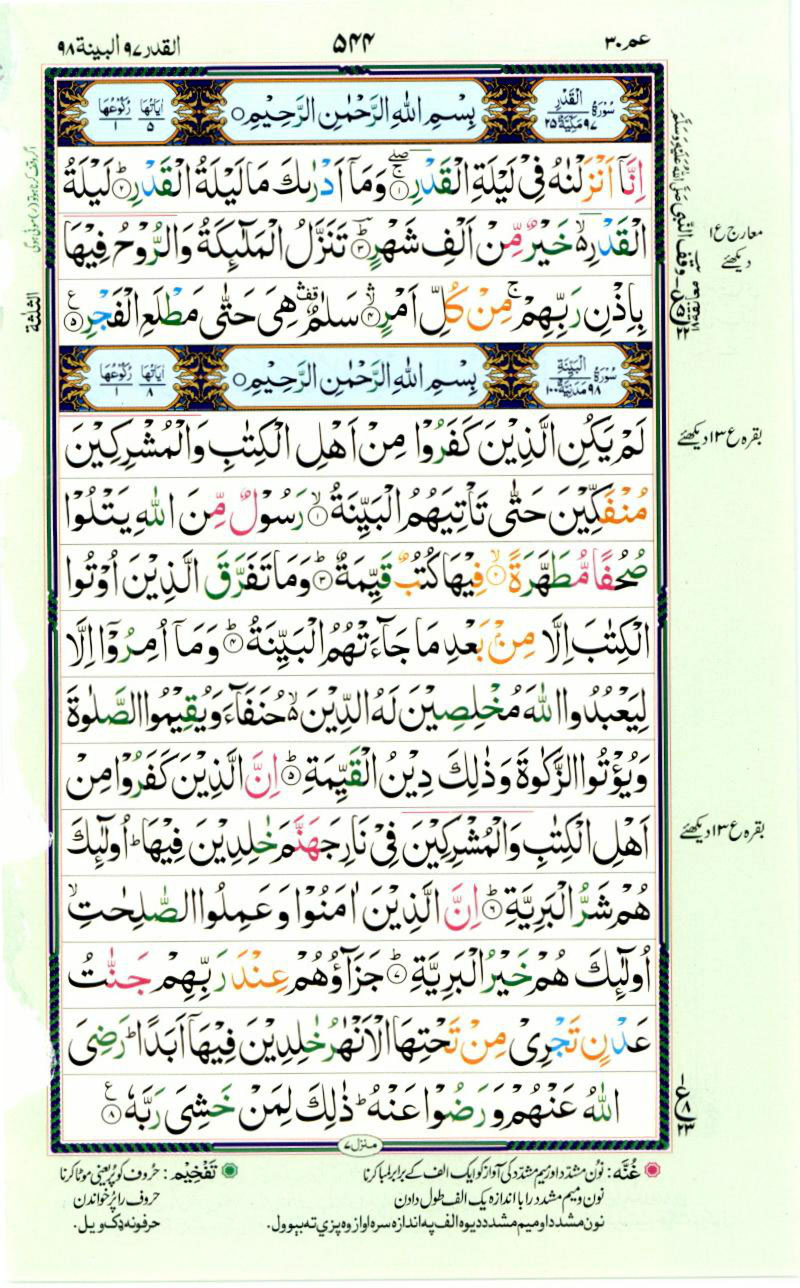 عم ۳۰
۵۴۴
القدر ۹۷ البينة ۹۸
سُوْرَةُ الْقَدْرِ ۹۷ مَكِّيَّةٌ ۲۵
بِسْمِ اللّٰهِ الرَّحْمٰنِ الرَّحِيْمِ
اٰيَاتُهَا ۵ رُكُوْعُهَا ۱
اِنَّاۤ اَنْزَلْنٰهُ فِىْ لَيْلَةِ الْقَدْرِ ۱ وَمَاۤ اَدْرٰىكَ مَا لَيْلَةُ الْقَدْرِؕ ۲ لَيْلَةُ
الْقَدْرِ ۙ خَيْرٌ مِّنْ اَلْفِ شَهْرٍؕ ۳ تَنَزَّلُ الْمَلٰٓئِكَةُ وَالرُّوْحُ فِيْهَا
بِاِذْنِ رَبِّهِمْ ۚ مِنْ كُلِّ اَمْرٍ ۙ ۴ سَلٰمٌ ۛ هِىَ حَتّٰى مَطْلَعِ الْفَجْرِ ۵
سُوْرَةُ الْبَيِّنَةِ ۹۸ مَدَنِيَّةٌ ۱۰۰
بِسْمِ اللّٰهِ الرَّحْمٰنِ الرَّحِيْمِ
اٰيَاتُهَا ۸ رُكُوْعُهَا ۱
لَمْ يَكُنِ الَّذِيْنَ كَفَرُوْا مِنْ اَهْلِ الْكِتٰبِ وَالْمُشْرِكِيْنَ
مُنْفَكِّيْنَ حَتّٰى تَاْتِيَهُمُ الْبَيِّنَةُ ۙ ۱ رَسُوْلٌ مِّنَ اللّٰهِ يَتْلُوْا
صُحُفًا مُّطَهَّرَةً ۙ ۲ فِيْهَا كُتُبٌ قَيِّمَةٌ ؕ ۳ وَمَا تَفَرَّقَ الَّذِيْنَ اُوْتُوا
الْكِتٰبَ اِلَّا مِنْۢ بَعْدِ مَا جَآءَتْهُمُ الْبَيِّنَةُ ؕ ۴ وَمَاۤ اُمِرُوْۤا اِلَّا
لِيَعْبُدُوا اللّٰهَ مُخْلِصِيْنَ لَهُ الدِّيْنَ ۙ حُنَفَآءَ وَيُقِيْمُوا الصَّلٰوةَ
وَيُؤْتُوا الزَّكٰوةَ وَذٰلِكَ دِيْنُ الْقَيِّمَةِ ؕ ۵ اِنَّ الَّذِيْنَ كَفَرُوْا مِنْ
اَهْلِ الْكِتٰبِ وَالْمُشْرِكِيْنَ فِىْ نَارِ جَهَنَّمَ خٰلِدِيْنَ فِيْهَا ؕ اُولٰٓئِكَ
هُمْ شَرُّ الْبَرِيَّةِ ؕ ۶ اِنَّ الَّذِيْنَ اٰمَنُوْا وَعَمِلُوا الصّٰلِحٰتِ ۙ
اُولٰٓئِكَ هُمْ خَيْرُ الْبَرِيَّةِ ؕ ۷ جَزَآؤُهُمْ عِنْدَ رَبِّهِمْ جَنّٰتُ
عَدْنٍ تَجْرِىْ مِنْ تَحْتِهَا الْاَنْهٰرُ خٰلِدِيْنَ فِيْهَاۤ اَبَدًا ؕ رَضِىَ
اللّٰهُ عَنْهُمْ وَرَضُوْا عَنْهُ ؕ ذٰلِكَ لِمَنْ خَشِىَ رَبَّهٗ ۸
منزل ۷
معارج ع ۱
دیکھئے
وقف النبی صلی اللہ علیہ وسلم
معانقه ۱۸
الثلثة
بقرہ ع ۱۳ دیکھئے
بقرہ ع ۱۳ دیکھئے
ع ۸ ۲۳
غُنَّه: نون مشدد اور میم مشدد کی آواز کو ایک الف کے برابر لمبا کرنا
نون و میم مشدد را با اندازه یک الف طول دادن
نون مشدد او میم مشدد دیوه الف په اندازه سره اواز وه پزې ته بېوول.
تَفْخِیْم: حروف کو پُر یعنی موٹا کرنا
حروف را پُر خواندن
حرفونه ډک ویل.